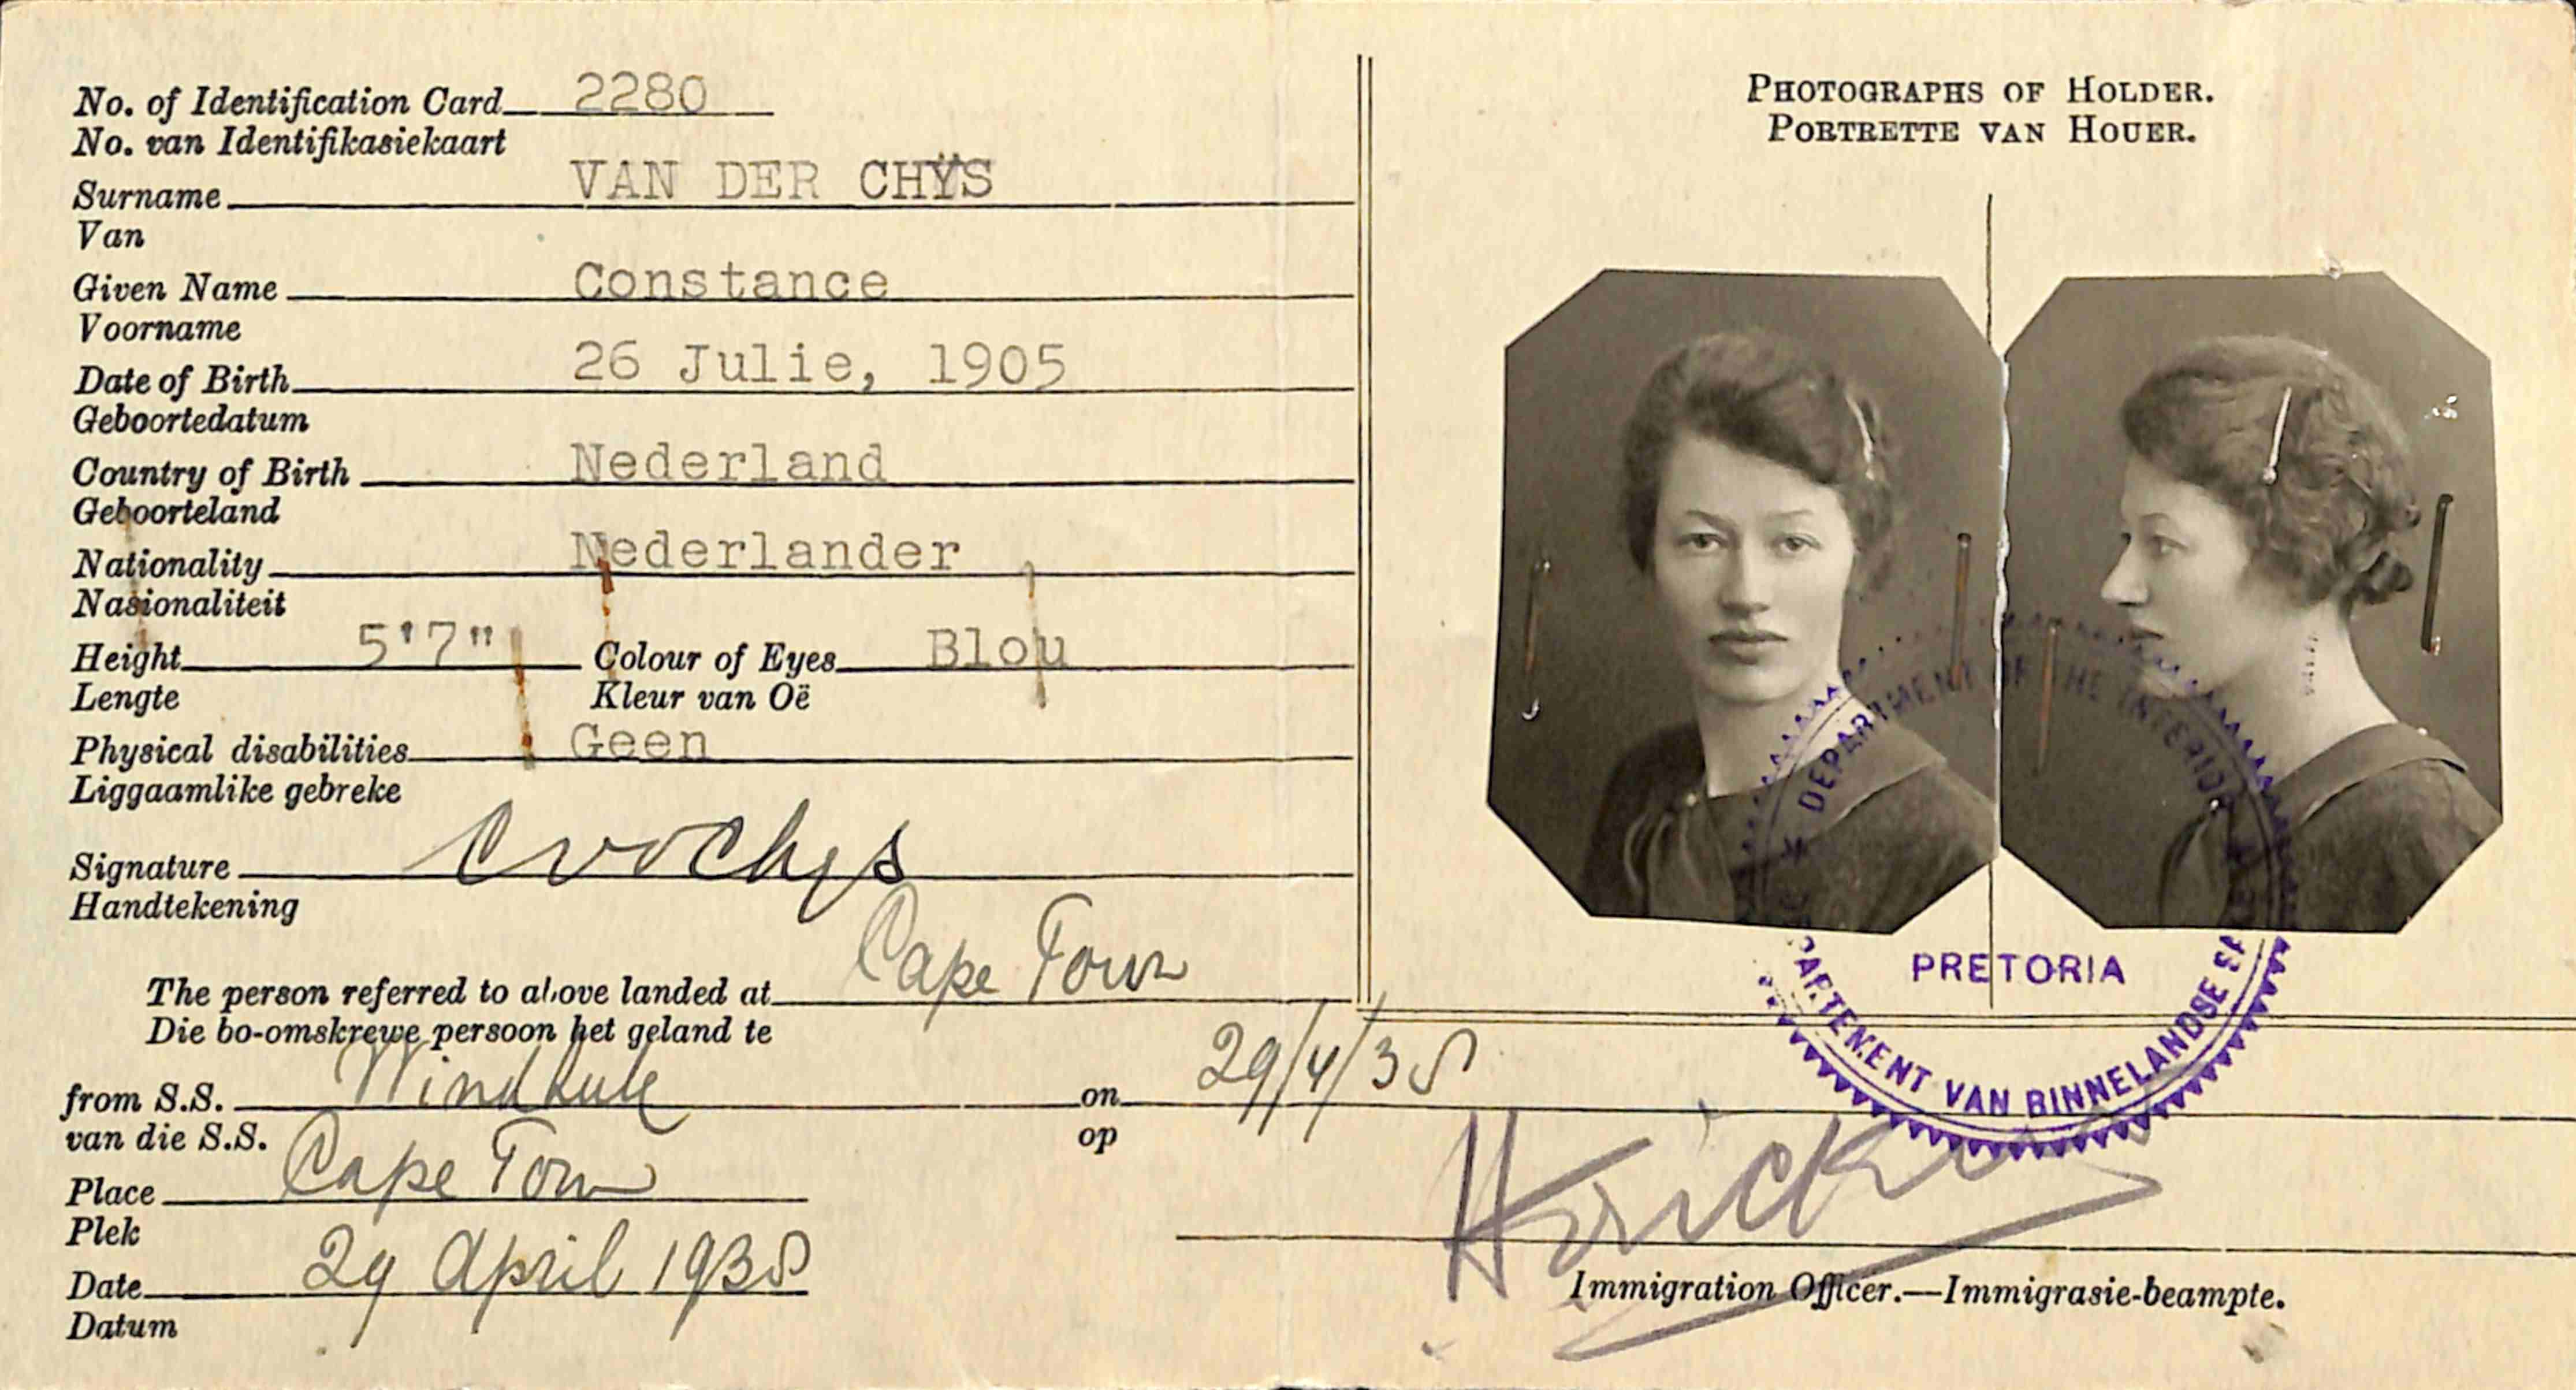 No. of Identification Card 2280
No. van Identifikasiekaart
Surname VAN DER CHŸS
Van
Given Name Constance
Voorname
Date of Birth 26 Julie, 1905
Geboortedatum
Country of Birth Nederland
Geboorteland
Nationality Nederlander
Nasionaliteit
Height 5'7" Colour of Eyes Blou
Lengte Kleur van Oë
Physical disabilities Geen
Liggaamlike gebreke
Signature
Handtekening
The person referred to above landed at Cape Town
Die bo-omskrewe persoon het geland te
from S.S. on 29/4/38
van die S.S. op
Place Cape Town
Plek
Date 29 April 1938
Datum
PHOTOGRAPHS OF HOLDER.
PORTRETTE VAN HOUER.
DEPARTMENT OF THE INTERIOR
PRETORIA
PARTEMENT VAN BINNELANDSE SA
Immigration Officer.—Immigrasie-beampte.